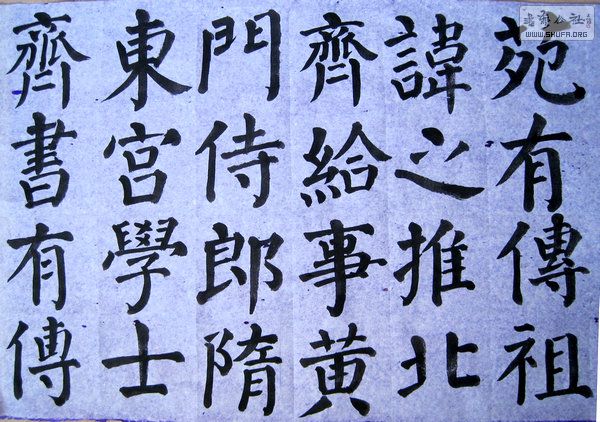 苑有傳祖
諱之推北
齊給事黃
門侍郎隋
東宮學士
齊書有傳
書法公社
WWW.SHUFA.ORG